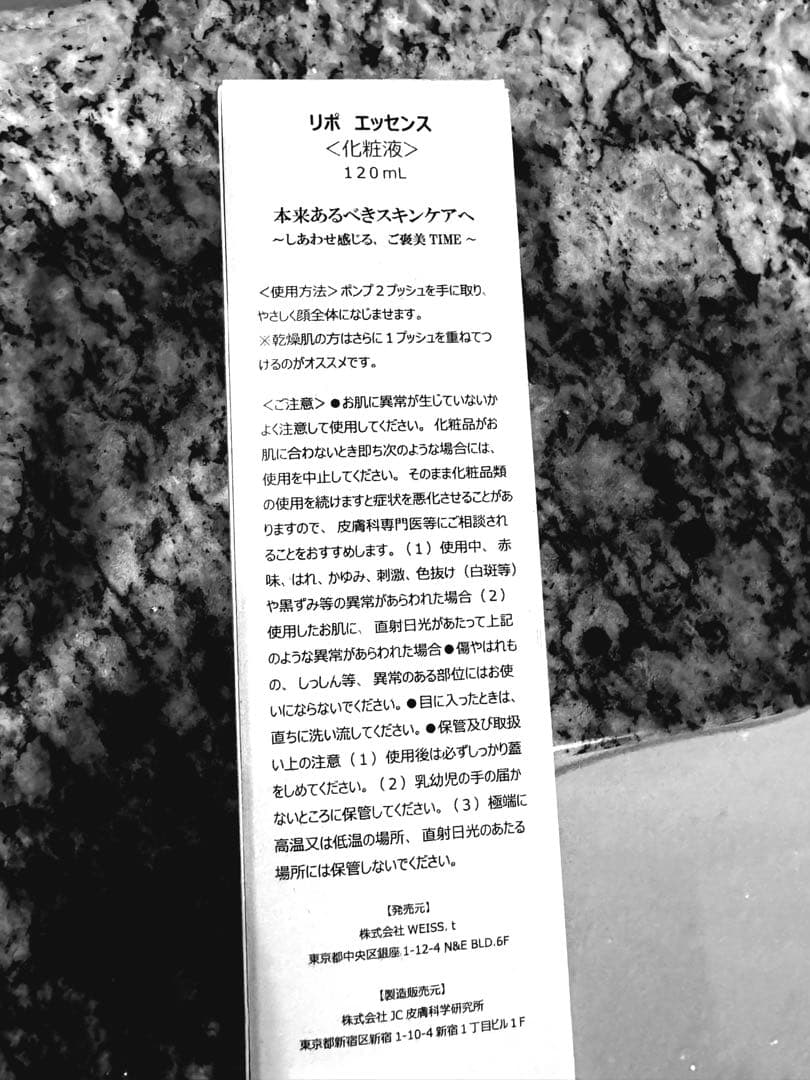 リポ エッセンス
＜化粧液＞
120mL
本来あるべきスキンケアへ
～しあわせ感じる、ご褒美 TIME～
＜使用方法＞ポンプ２プッシュを手に取り、
やさしく顔全体になじませます。
※乾燥肌の方はさらに１プッシュを重ねてつ
けるのがオススメです。
＜ご注意＞●お肌に異常が生じていないか
よく注意して使用してください。化粧品がお
肌に合わないとき即ち次のような場合には、
使用を中止してください。そのまま化粧品類
の使用を続けますと症状を悪化させることがあ
りますので、皮膚科専門医等にご相談され
ることをおすすめします。（１）使用中、赤
味、はれ、かゆみ、刺激、色抜け（白斑等）
や黒ずみ等の異常があらわれた場合（２）
使用したお肌に、直射日光があたって上記
のような異常があらわれた場合●傷やはれも
の、しっしん等、異常のある部位にはお使
いにならないでください。●目に入ったときは、
直ちに洗い流してください。●保管及び取扱
い上の注意（１）使用後は必ずしっかり蓋
をしめてください。（２）乳幼児の手の届か
ないところに保管してください。（３）極端に
高温又は低温の場所、直射日光のあたる
場所には保管しないでください。
【発売元】
株式会社 WEISS. t
東京都中央区銀座 1-12-4 N&E BLD.6F
【製造販売元】
株式会社 JC 皮膚科学研究所
東京都新宿区新宿 1-10-4 新宿１丁目ビル１F